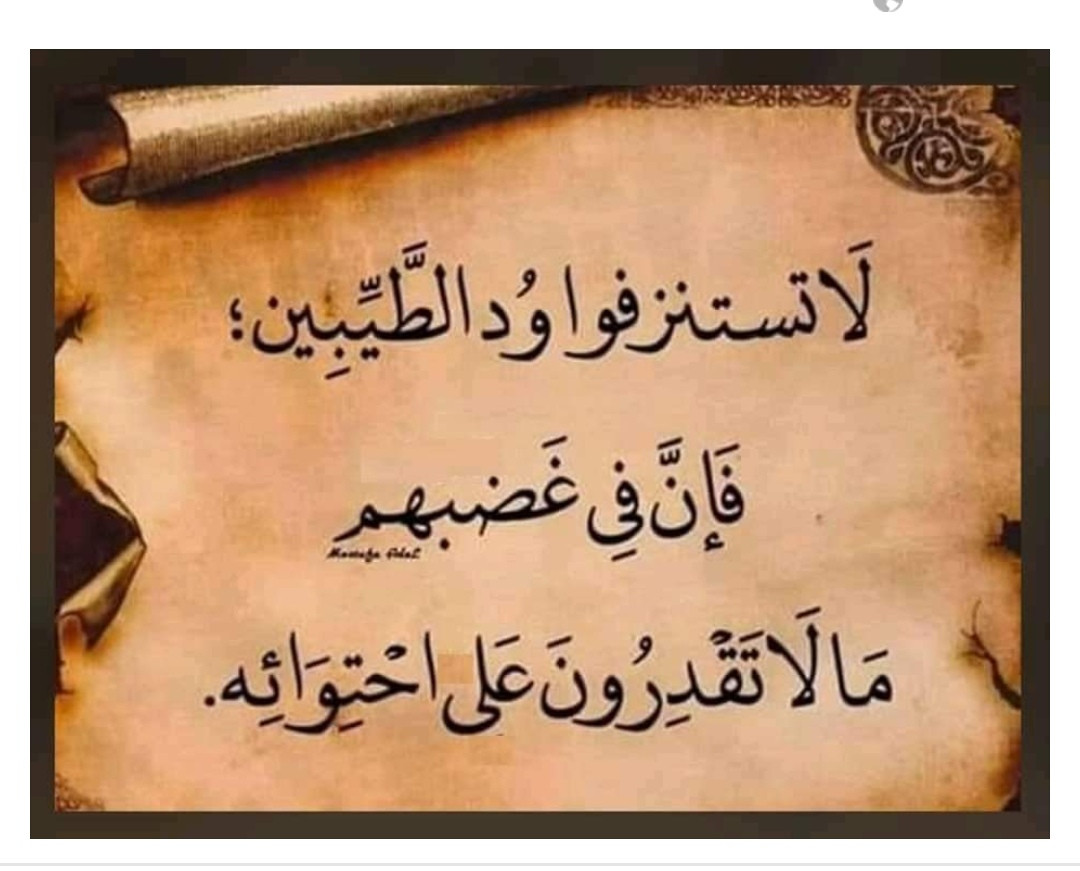 لَا تستنزفوا وُد الطَّيِّبِين؛
فَإنَّ فِي غَضبهم
مَا لَا تَقْدِرُونَ عَلى احْتِوَائِه.